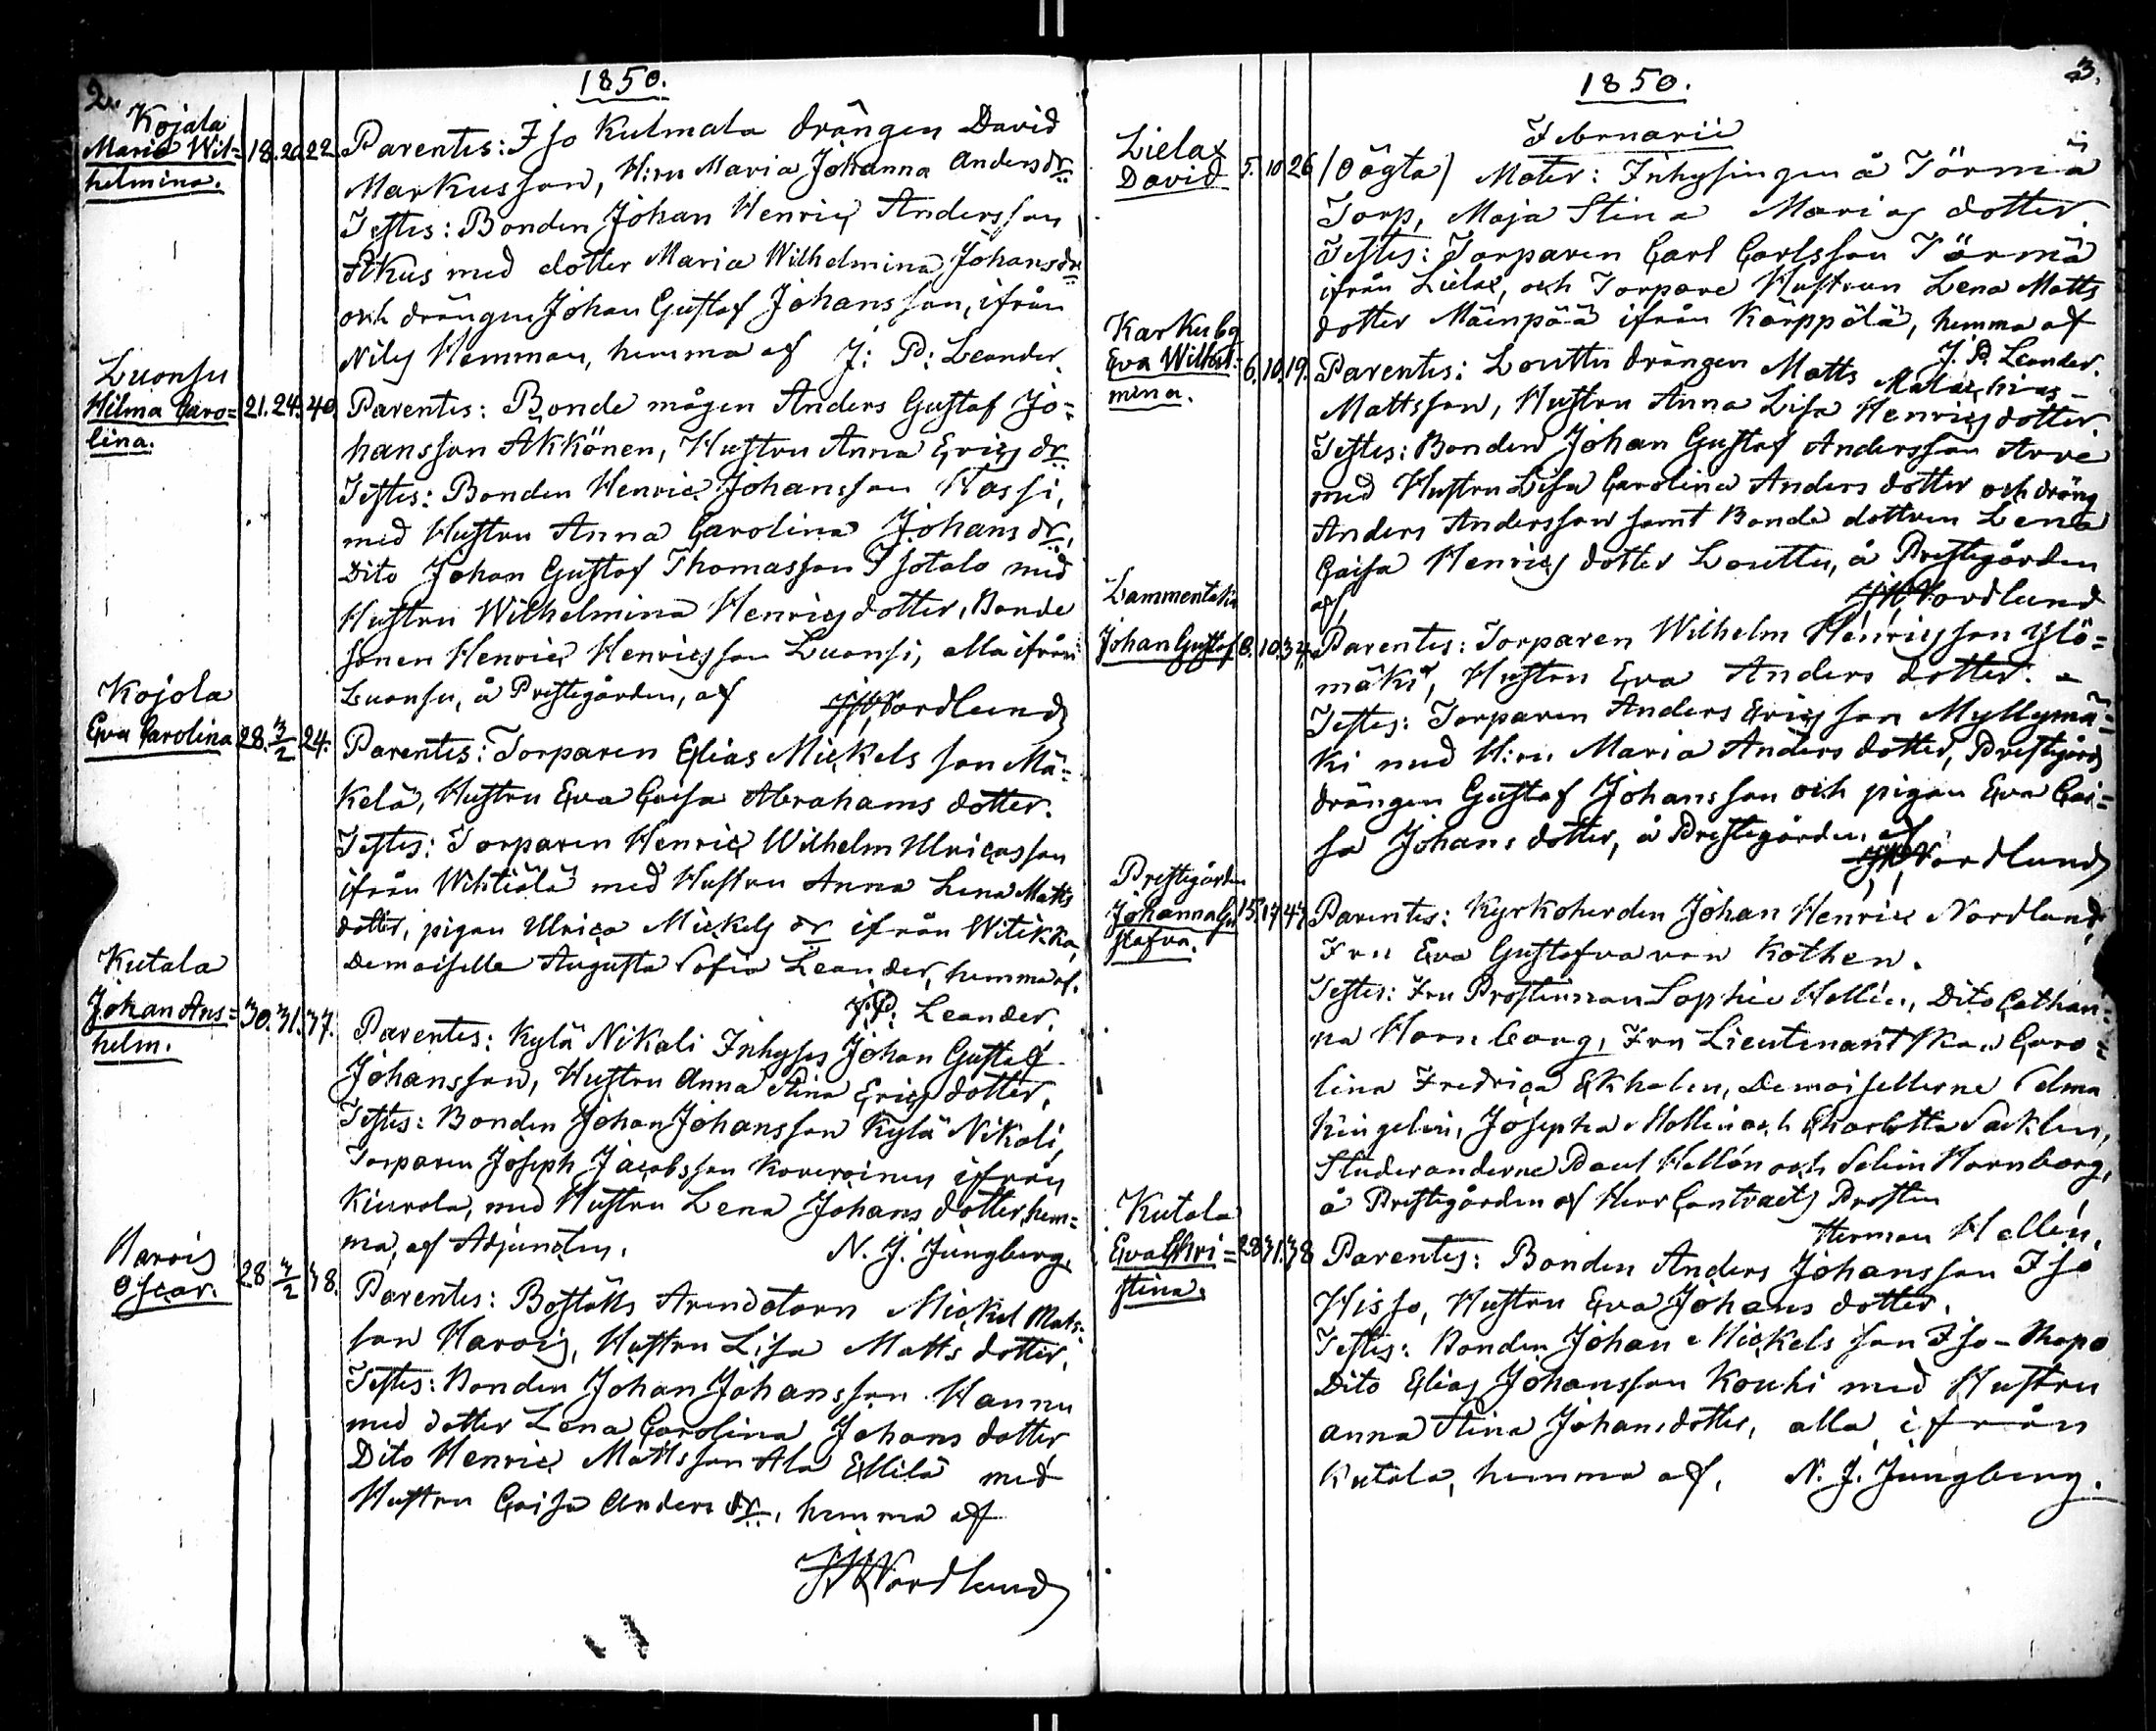 2.
1850.
Kojala
Maria Wil=
helmina.
18. 20. 22.
Parentes: Iso Kulmala drängen David
Markusson, H:ru Maria Johanna Anders dr
Testes: Bonden Johan Henric Andersson
Akus med dotter Maria Wilhelmina Johans dr
och drängen Johan Gustaf Johansson, ifrån
Nily Hemman, hemma af J: P: Leander.
Luonsu
Hilma Caro=
lina.
21. 24. 40.
Parentes: Bonde mågen Anders Gustaf Jo=
hansson Äkkönen, Hustru Anna Erics dr
Testes: Bonden Henric Johansson Hassi,
med Hustru Anna Carolina Johans dr,
Dito Johan Gustaf Thomasson Isotalo med
Hustru Wilhelmina Henrics dotter, Bonde
sonen Henric Henricsson Luonsi, alla ifrån
Luonsu, å Prestegården, af JHNordlund
Kojola
Eva Carolina
28. 3/2 24.
Parentes: Torparen Elias Mickelsson Mä=
kelä, Hustru Eva Caisa Abrahams dotter.
Testes: Torparen Henric Wilhelm Ulricasson
ifrån Wihtiälä med Hustru Anna Lena Matts
dotter, pigan Ulrica Mickels dr ifrån Witikka,
Demoiselle Augusta Sofia Leander, hemma af.
J. P: Leander.
Kutala
Johan Ans=
helm.
30. 31. 37.
Parentes: Kylä Nikali Inhyses Johan Gustaf
Johansson, Hustru Anna Stina Erics dotter.
Testes: Bonden Johan Johansson Kylä Nikali,
Torparen Joseph Jacobsson Koveroinen ifrån
Kiurola, med Hustru Lena Johans dotter, hem=
ma, af Adjuncten. N. J. Jungberg.
Harois
Oscar.
28 3/2 38.
Parentes: Boställs Arendatorn Mickel Mats=
son Harois, Hustru Lisa Matts dotter.
Testes: Bonden Johan Johansson Hannu
med dotter Lena Carolina Johans dotter
Dito Henric Mattsson Ala Ellilä med
Hustru Caisa Anders dr, hemma af
JHNordlund
3.
1850.
Februarii
Lielax
David
5. 10 26
(Oägta) Mater: Inhysingen å Törmä
Torp, Maja Stina Marias dotter.
Testes: Torparen Carl Carlsson Törmä
ifrån Lielax, och Torpare Hustrun Lena Matts
dotter Mäenpää ifrån Kärppälä, hemma af
J. P. Leander.
Karkuby
Eva Wilhel=
mina.
6. 10. 19.
Parentes: Louttu drängen Matts Malachias
Mattsson, Hustru Anna Lisa Henrics dotter.
Testes: Bonden Johan Gustaf Andersson Arve
med Hustru Lisa Carolina Anders dotter och dräng
Anders Andersson samt Bonde dottren Lena
Caisa Henrics dotter Louttu, å Prestegården
af JHNordlund
Lammentaka
Johan Gustaf
8. 10. 34.
Parentes: Torparen Wilhelm Henricsson Ylö=
mäki, Hustru Eva Anders dotter.
Testes: Torparen Anders Ericsson Myllymä=
ki med H:ru Maria Anders dotter, Prestgårds
drängen Gustaf Johansson och pigan Eva Cai=
sa Johans dotter, å Prestegården af
JHNordlund
Prestegården
Johanna Gu
stafva.
15. 17 47
Parentes: Kyrkoherden Johan Henric Nordlund,
Fru Eva Gustafva von Köthen.
Testes: Fru Prostinnan Sophie Hellén, Dito Cathari=
na Hornborg, Fru Lieutenantskan Caro=
lina Fredrica Ekholen, Demoisellerne Selma
Kingelin, Josepha Mollin och Charlotta Sacklen,
Studeranderne Paul Hellén och Selim Hornborg,
å Prestegården af Herr Contracts Prosten
Herman Hellén.
Kutala
Eva Chri=
stina.
28 31. 38
Parentes: Bonden Anders Johansson Iso
Hisso, Hustru Eva Johans dotter.
Testes: Bonden Johan Mickelsson Iso-Rapo
Dito Elias Johansson Kouhi med Hustru
Anna Stina Johansdotter, alla ifrån
Kutala, hemma af, N. J. Jungberg.